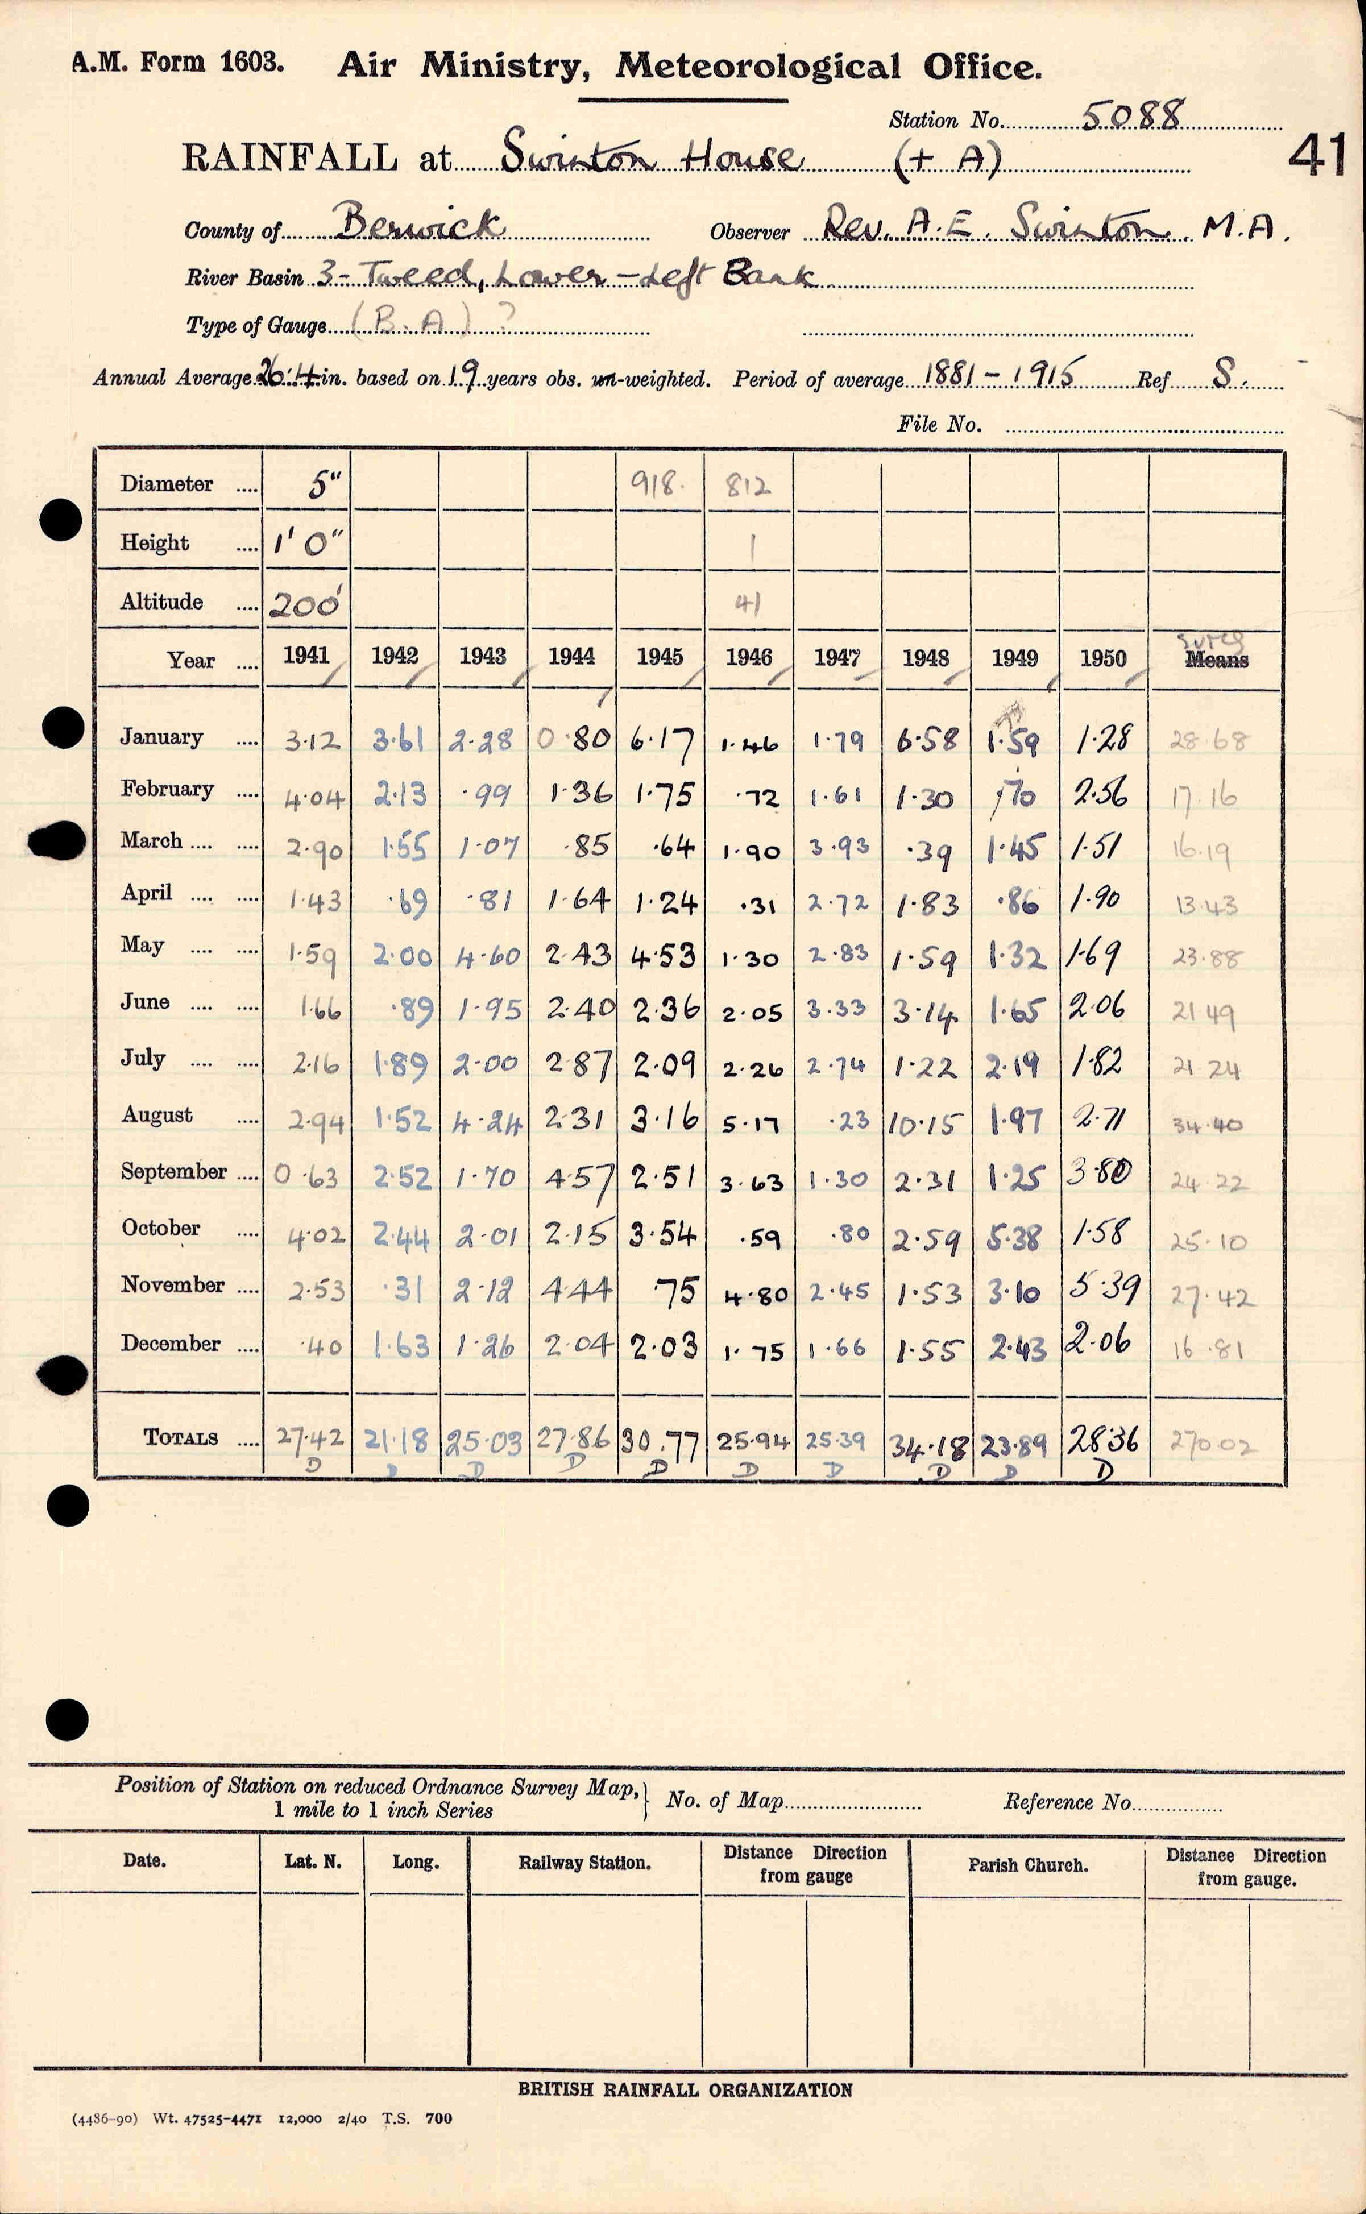 A.M. Form 1603. Air Ministry, Meteorological Office.
Station No. 5088
RAINFALL at Swinton House (+ A) 41
County of Berwick Observer Rev. A. E. Swinton. M.A.
River Basin 3 - Tweed, Lower - Left Bank
Type of Gauge (B. A) ?
Annual Average 26.4 in. based on 19 years obs. un-weighted. Period of average 1881 - 1915 Ref S.
File No.
Diameter .... 5" 918. 812
Height .... 1' 0" 1
Altitude .... 200' 41
Year .... 1941 1942 1943 1944 1945 1946 1947 1948 1949 1950 Means
January .... 3.12 3.61 2.28 0.80 6.17 1.46 1.79 6.58 1.59 1.28 28.68
February .... 4.04 2.13 .99 1.36 1.75 .72 1.61 1.30 .70 2.56 17.16
March .... .... 2.90 1.55 1.07 .85 .64 1.90 3.93 .39 1.45 1.51 16.19
April .... .... 1.43 .69 .81 1.64 1.24 .31 2.72 1.83 .86 1.90 13.43
May .... .... 1.59 2.00 4.60 2.43 4.53 1.30 2.83 1.59 1.32 1.69 23.88
June .... .... 1.66 .89 1.95 2.40 2.36 2.05 3.33 3.14 1.65 2.06 21 49
July .... .... 2.16 1.89 2.00 2.87 2.09 2.26 2.74 1.22 2.19 1.82 21 24
August .... 2.94 1.52 4.24 2.31 3.16 5.17 .23 10.15 1.97 2.71 34.40
September .... 0.63 2.52 1.70 4.57 2.51 3.63 1.30 2.31 1.25 3.80 24.22
October .... 4.02 2.44 2.01 2.15 3.54 .59 .80 2.59 5.38 1.58 25.10
November .... 2.53 .31 2.12 4.44 .75 4.80 2.45 1.53 3.10 5.39 27.42
December .... .40 1.63 1.26 2.04 2.03 1.75 1.66 1.55 2.43 2.06 16.81
TOTALS .... 27.42 21.18 25.03 27.86 30.77 25.94 25.39 34.18 23.89 28.36 270.02
D D D D D D D D D D
Position of Station on reduced Ordnance Survey Map, 1 mile to 1 inch Series } No. of Map Reference No.
Date. Lat. N. Long. Railway Station. Distance from gauge Direction Parish Church. Distance Direction from gauge.
BRITISH RAINFALL ORGANIZATION
(4486-90) Wt. 47525-4471 12,000 2/40 T.S. 700